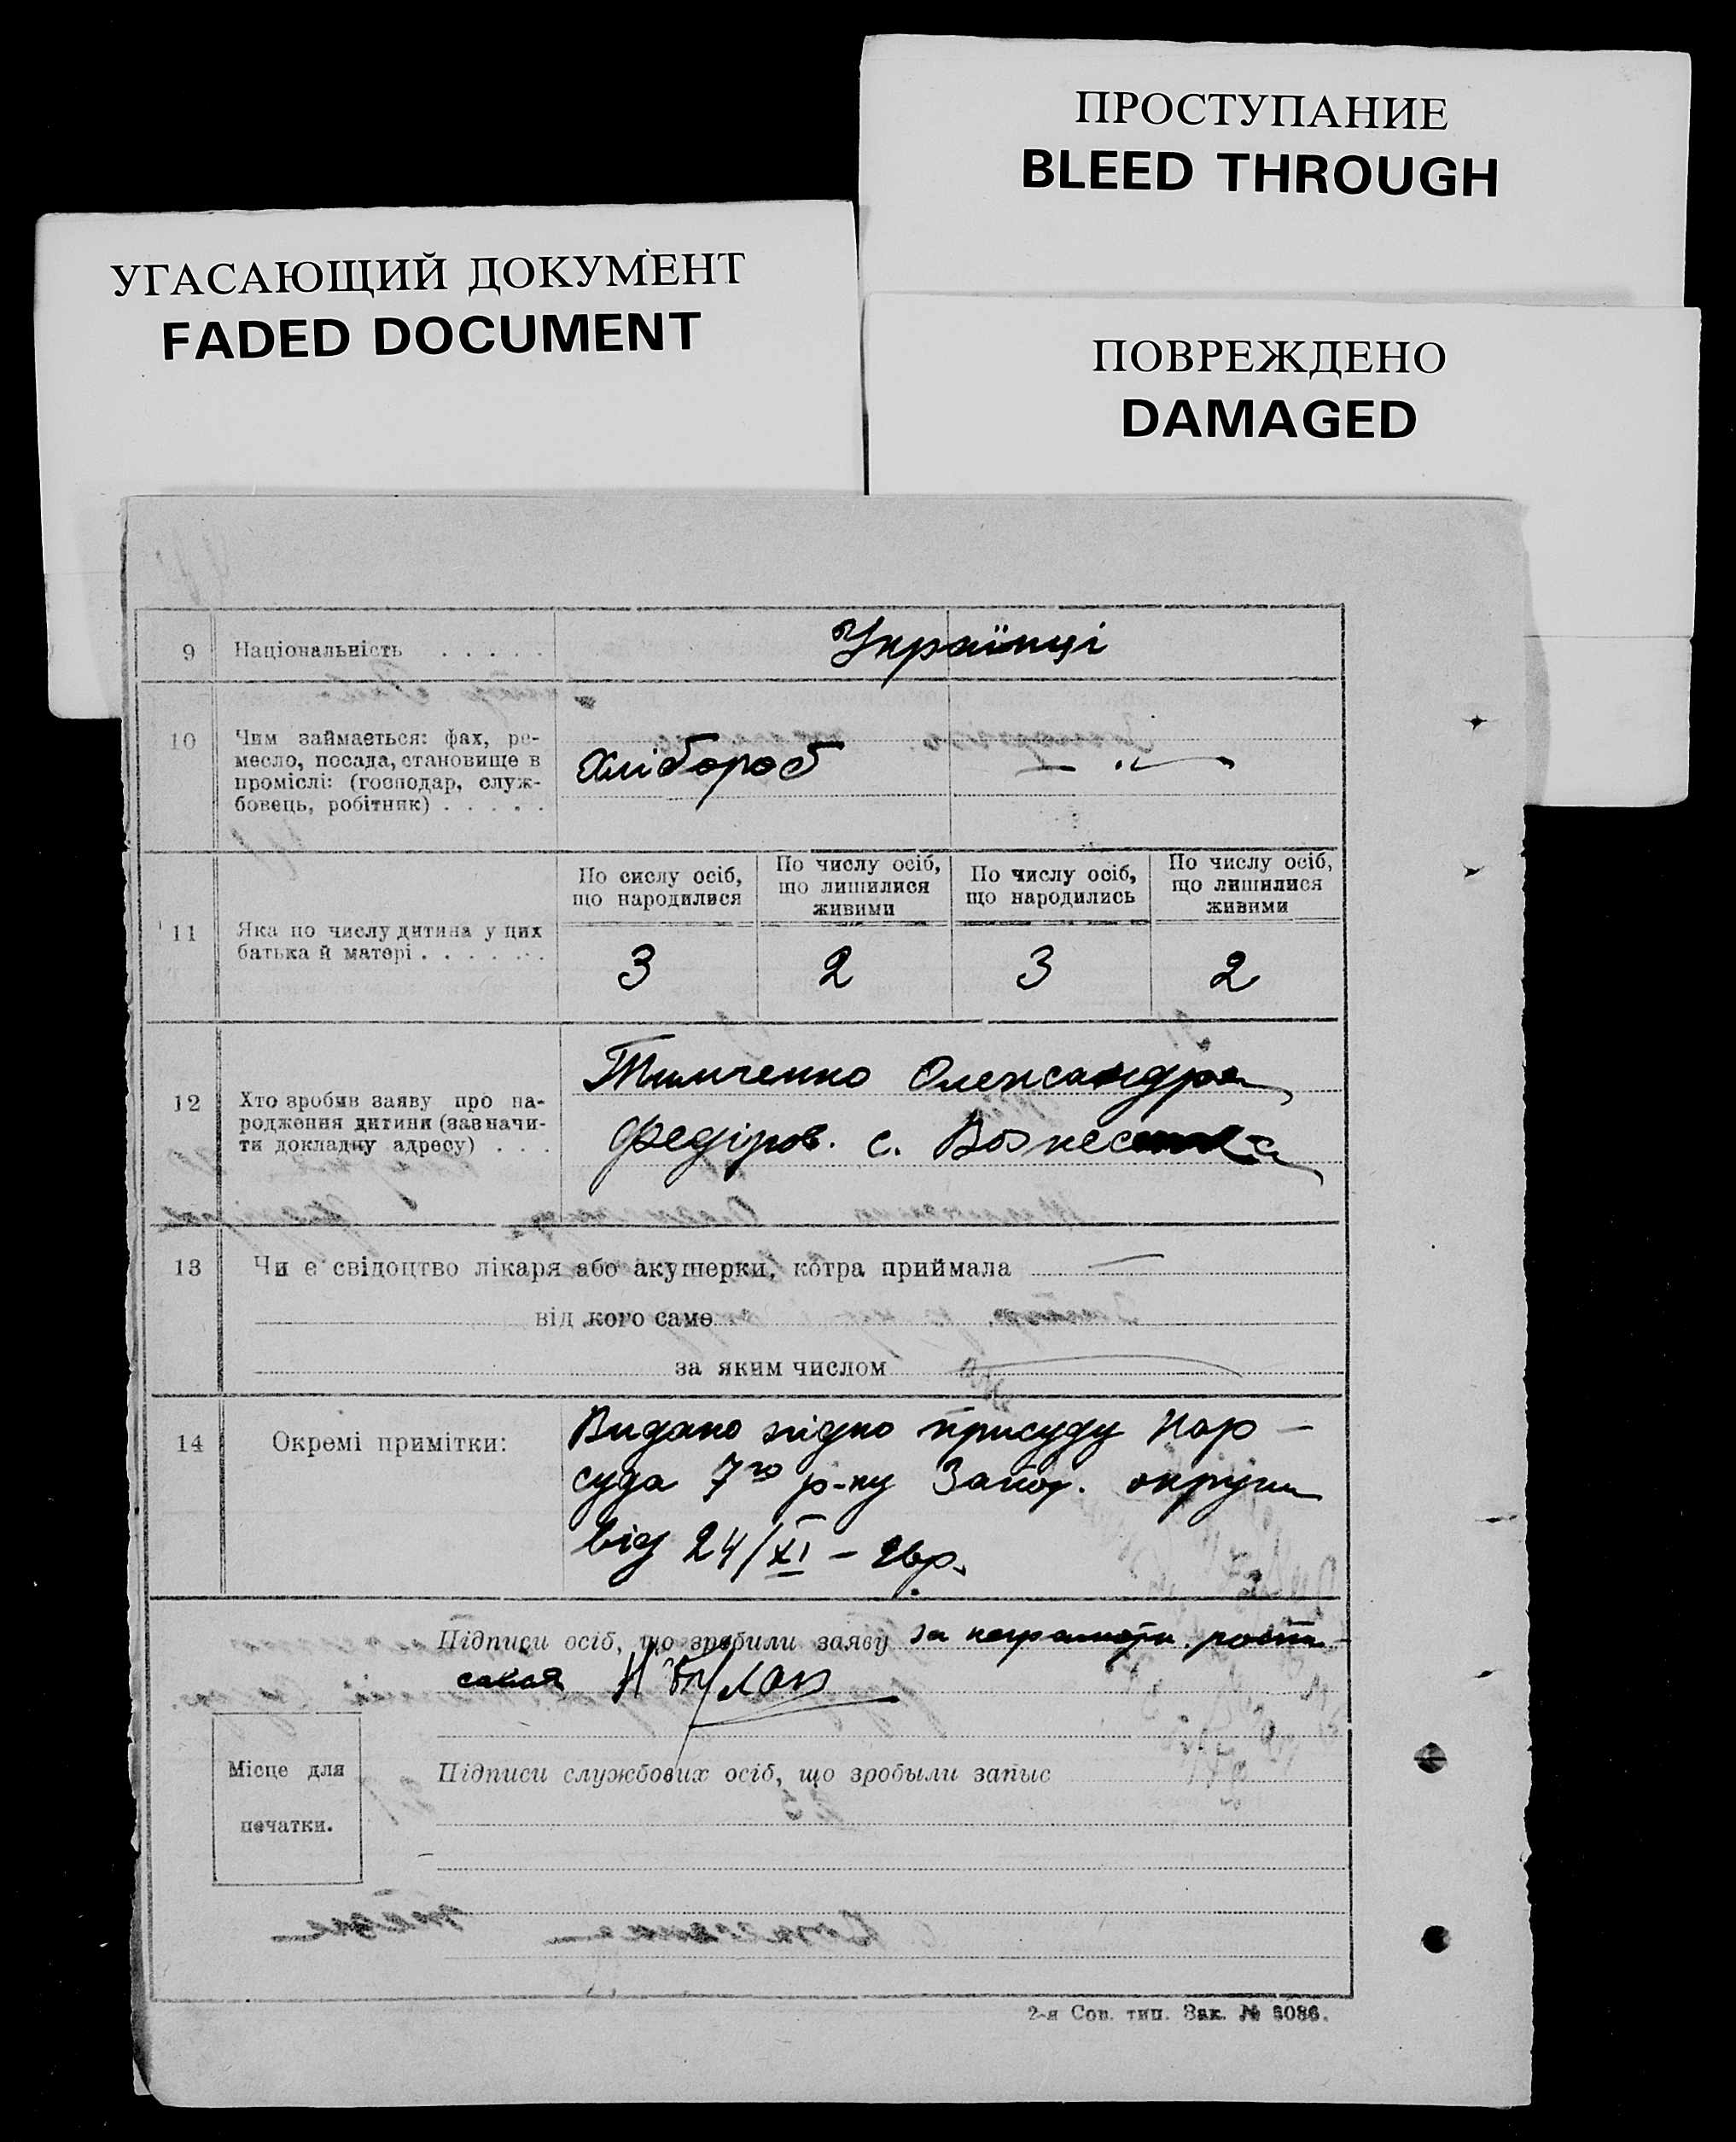 ПРОСТУПАНИЕ
BLEED THROUGH
УГАСАЮЩИЙ ДОКУМЕНТ
FADED DOCUMENT
ПОВРЕЖДЕНО
DAMAGED
9 Національність . . . . . Українці
10 Чим займається: фах, ре-
месло, посада, становище в
проміслі: (господар, служ-
бовець, робітник) . . . . .
хлібороб — „ —
11 Яка по числу дитина у цих
батька й матері . . . . . .
По сислу осіб,
що народилися
По числу осіб,
що лишилися
живими
По числу осіб,
що народились
По числу осіб,
що лишилися
живими
3 2 3 2
12 Хто зробив заяву про на-
родження дитини (зазначи-
ти докладну адресу) . . .
Тимченко Олександра
Федіров. с. Вознесенка
13 Чи є свідоцтво лікаря або акушерки, котра приймала —
від кого саме
за яким числом —
14 Окремі примітки:
Видано згідно присуду Нар-
суда 7го р-ну Запор. округи
від 24/XI – 26р.
Підписи осіб, що зробили заяву за неграмотн. роспи-
сався
Місце для
печатки.
Підписи службових осіб, що зробыли запыс
2-я Сов. тип. Зак. № 5086.